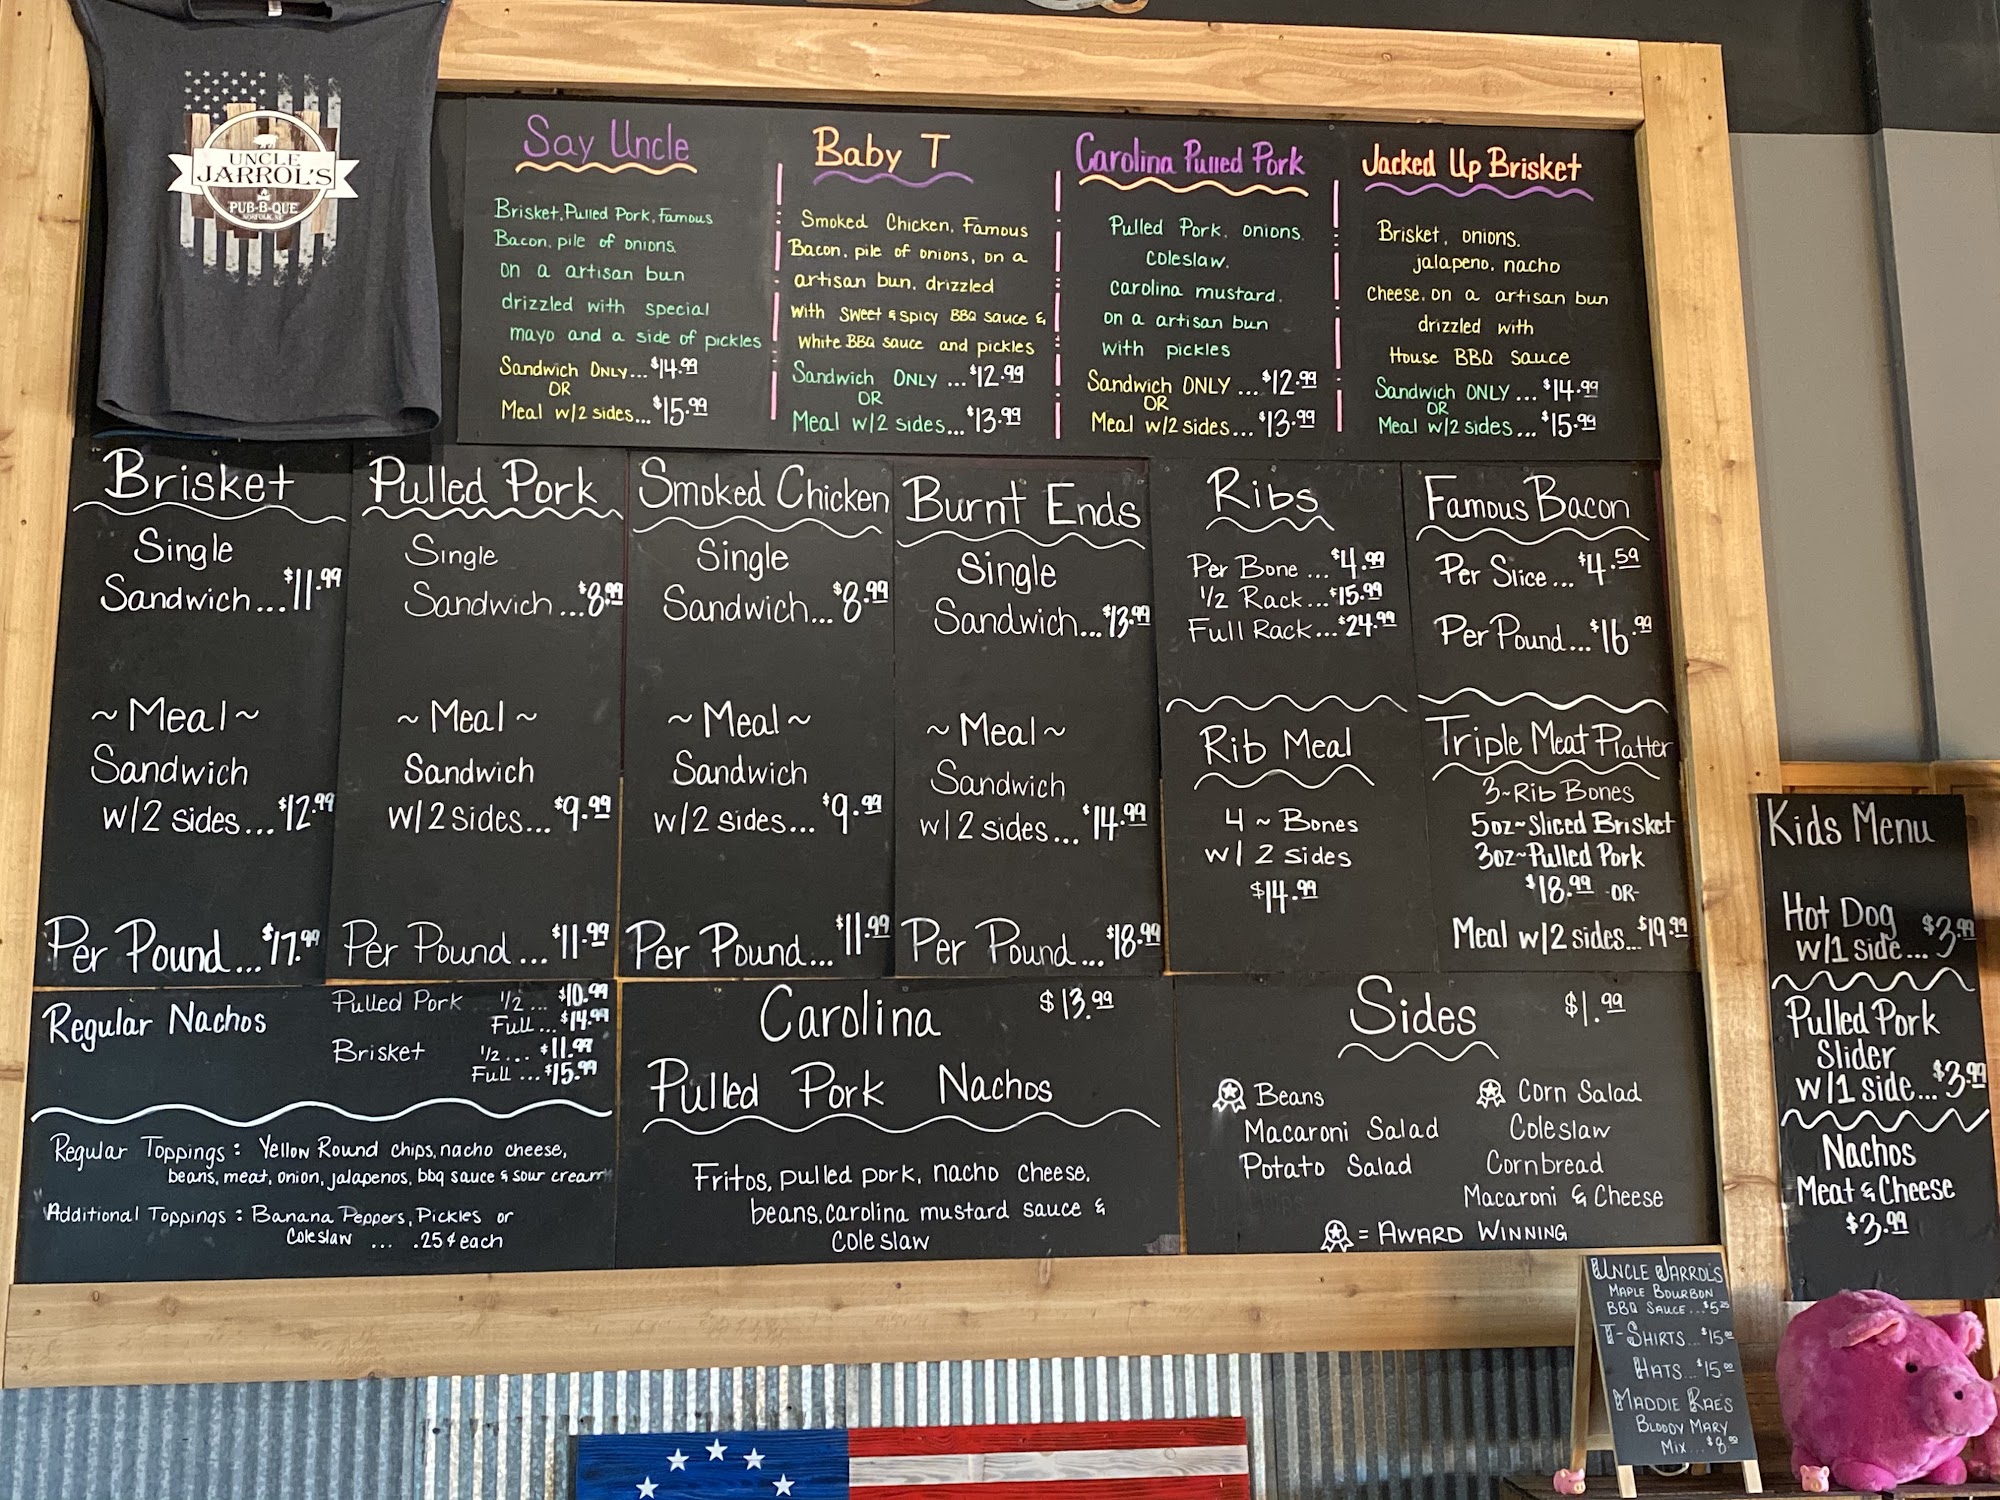 UNCLE
JARROL'S
PUB-B-QUE
NORFOLK, NE
Say Uncle
Brisket, Pulled Pork, Famous
Bacon, pile of onions,
on a artisan bun
drizzled with special
mayo and a side of pickles
Sandwich ONLY... $14.99
OR
Meal w/2 sides... $15.99
Baby T
Smoked Chicken, Famous
Bacon, pile of onions, on a
artisan bun, drizzled
with sweet & spicy BBQ sauce &
white BBQ sauce and pickles
Sandwich ONLY ... $12.99
OR
Meal w/2 sides... $13.99
Carolina Pulled Pork
Pulled Pork, onions,
coleslaw,
carolina mustard,
on a artisan bun
with pickles
Sandwich ONLY ... $12.99
OR
Meal w/2 sides... $13.99
Jacked Up Brisket
Brisket, onions,
jalapeno, nacho
cheese, on a artisan bun
drizzled with
House BBQ sauce
Sandwich ONLY ... $14.99
OR
Meal w/2 sides... $15.99
Brisket
Single
Sandwich... $11.99
~Meal~
Sandwich
w/2 sides... $12.99
Per Pound... $17.99
Pulled Pork
Single
Sandwich... $8.99
~Meal~
Sandwich
w/2 sides... $9.99
Per Pound... $11.99
Smoked Chicken
Single
Sandwich... $8.99
~Meal~
Sandwich
w/2 sides... $9.99
Per Pound... $11.99
Burnt Ends
Single
Sandwich... $13.99
~Meal~
Sandwich
w/2 sides... $14.99
Per Pound... $18.99
Ribs
Per Bone ... $4.99
1/2 Rack... $15.99
Full Rack... $24.99
Rib Meal
4 ~ Bones
w/ 2 sides
$14.99
Famous Bacon
Per Slice... $4.59
Per Pound... $16.99
Triple Meat Platter
3~Rib Bones
5oz~Sliced Brisket
3oz~Pulled Pork
$18.99 -OR-
Meal w/2 sides... $19.99
Regular Nachos
Pulled Pork 1/2 ... $10.99
Full ... $14.99
Brisket 1/2 ... $11.99
Full ... $15.99
Regular Toppings: Yellow Round chips, nacho cheese,
beans, meat, onion, jalapenos, bbq sauce & sour cream
Additional Toppings: Banana Peppers, Pickles or
Coleslaw ... .25¢ each
Carolina $13.99
Pulled Pork Nachos
Fritos, pulled pork, nacho cheese,
beans, carolina mustard sauce &
coleslaw
Sides $1.99
Beans
Macaroni Salad
Potato Salad
Corn Salad
Coleslaw
Cornbread
Macaroni & Cheese
= AWARD WINNING
Kids Menu
Hot Dog
w/1 side... $3.99
Pulled Pork
Slider
w/1 side... $3.99
Nachos
Meat & Cheese
$3.99
UNCLE JARROL'S
MAPLE BOURBON
BBQ SAUCE...$5.25
T-SHIRTS...$15.00
HATS...$15.00
MADDIE RAE'S
BLOODY MARY
MIX...$8.00